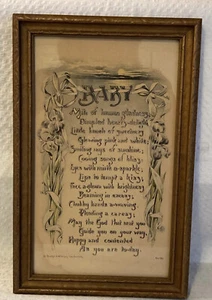 BABY
A mite of human gladness,
Dimpled head
Little bunch of sweetness
Glowing pink and white;
Smiling rays of sunshine,
Cooing songs of bliss;
Eyes with mirth a-sparkle;
Lips to tempt a kiss;
Face aglow with brightness
Beaming in
Chubby hands a-waving
Pleading
May the God that sent you
Guide you on your way,
Happy and contented
As you are today.